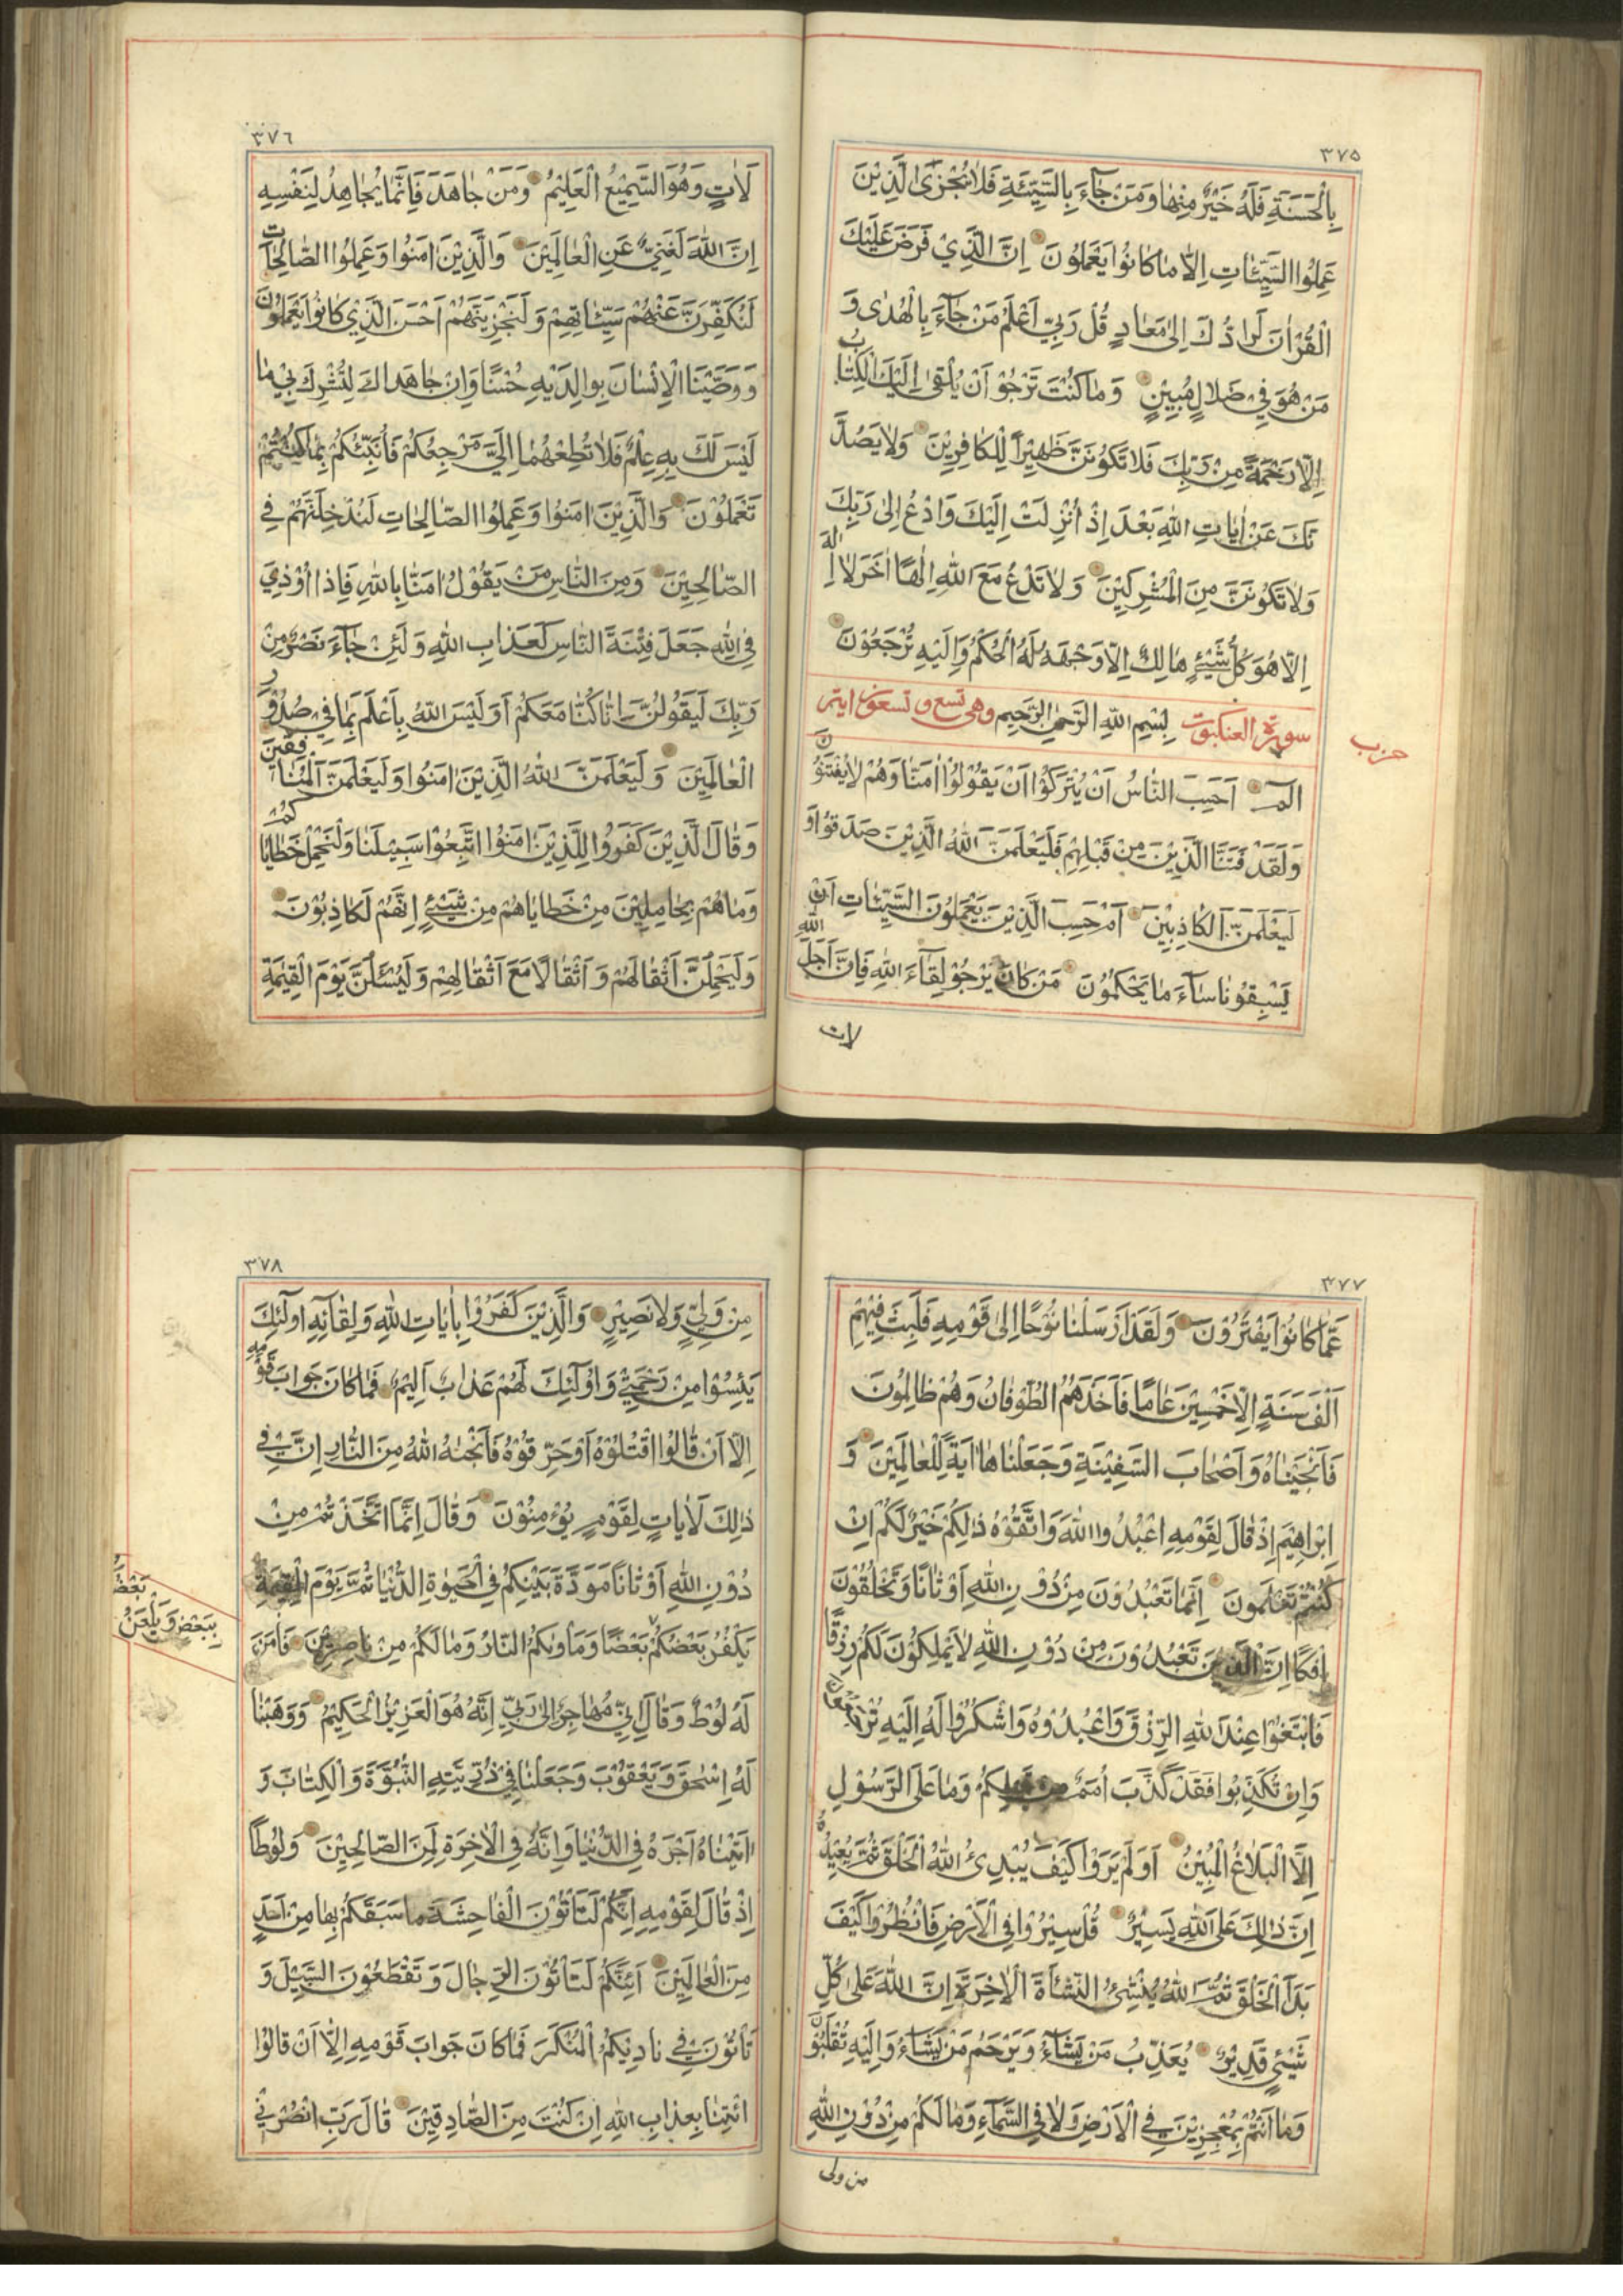 ٣٧٥
بِالْحَسَنَةِ فَلَهُ خَيْرٌ مِنْهَا وَمَنْ جَآءَ بِالسَّيِّئَةِ فَلَا يُجْزَى الَّذِيْنَ
عَمِلُوا السَّيِّئَاتِ اِلَّا مَا كَانُوا يَعْمَلُونَ اِنَّ الَّذِيْ فَرَضَ عَلَيْكَ
الْقُرْاٰنَ لَرَادُّكَ اِلٰى مَعَادٍ قُلْ رَبِّيْ اَعْلَمُ مَنْ جَآءَ بِالْهُدٰى وَ
مَنْ هُوَ فِيْ ضَلَالٍ مُبِيْنٍ وَمَا كُنْتَ تَرْجُوْ اَنْ يُلْقٰى اِلَيْكَ الْكِتَابُ
اِلَّا رَحْمَةً مِنْ رَبِّكَ فَلَا تَكُوْنَنَّ ظَهِيْرًا لِلْكَافِرِيْنَ وَلَا يَصُدَّ
نَّكَ عَنْ اٰيَاتِ اللّٰهِ بَعْدَ اِذْ اُنْزِلَتْ اِلَيْكَ وَادْعُ اِلٰى رَبِّكَ
وَلَا تَكُوْنَنَّ مِنَ الْمُشْرِكِيْنَ وَلَا تَدْعُ مَعَ اللّٰهِ اِلٰهًا اٰخَرَ لَا اِلٰهَ
اِلَّا هُوَ كُلُّ شَيْئٍ هَالِكٌ اِلَّا وَجْهَهُ لَهُ الْحُكْمُ وَاِلَيْهِ تُرْجَعُوْنَ
سورة العنكبوت بِسْمِ اللّٰهِ الرَّحْمٰنِ الرَّحِيْمِ وهى تسع و تسعون اية
حزب
الٓمٓ اَحَسِبَ النَّاسُ اَنْ يُتْرَكُوْا اَنْ يَقُوْلُوْا اٰمَنَّا وَهُمْ لَا يُفْتَنُوْنَ
وَلَقَدْ فَتَنَّا الَّذِيْنَ مِنْ قَبْلِهِمْ فَلَيَعْلَمَنَّ اللّٰهُ الَّذِيْنَ صَدَقُوْا وَ
لَيَعْلَمَنَّ الْكَاذِبِيْنَ اَمْ حَسِبَ الَّذِيْنَ يَعْمَلُوْنَ السَّيِّئَاتِ اَنْ
يَسْبِقُوْنَا سَآءَ مَا يَحْكُمُوْنَ مَنْ كَانَ يَرْجُوْ لِقَآءَ اللّٰهِ فَاِنَّ اَجَلَ اللّٰهِ
لات
٣٧٦
لَاٰتٍ وَهُوَ السَّمِيْعُ الْعَلِيْمُ وَمَنْ جَاهَدَ فَاِنَّمَا يُجَاهِدُ لِنَفْسِهِ
اِنَّ اللّٰهَ لَغَنِيٌّ عَنِ الْعَالَمِيْنَ وَالَّذِيْنَ اٰمَنُوْا وَعَمِلُوا الصَّالِحَاتِ
لَنُكَفِّرَنَّ عَنْهُمْ سَيِّئَاتِهِمْ وَلَنَجْزِيَنَّهُمْ اَحْسَنَ الَّذِيْ كَانُوْا يَعْمَلُوْنَ
وَوَصَّيْنَا الْاِنْسَانَ بِوَالِدَيْهِ حُسْنًا وَاِنْ جَاهَدَاكَ لِتُشْرِكَ بِيْ مَا
لَيْسَ لَكَ بِهِ عِلْمٌ فَلَا تُطِعْهُمَا اِلَيَّ مَرْجِعُكُمْ فَاُنَبِّئُكُمْ بِمَا كُنْتُمْ
تَعْمَلُوْنَ وَالَّذِيْنَ اٰمَنُوْا وَعَمِلُوا الصَّالِحَاتِ لَنُدْخِلَنَّهُمْ فِي
الصَّالِحِيْنَ وَمِنَ النَّاسِ مَنْ يَقُوْلُ اٰمَنَّا بِاللّٰهِ فَاِذَا اُوْذِيَ
فِي اللّٰهِ جَعَلَ فِتْنَةَ النَّاسِ كَعَذَابِ اللّٰهِ وَلَئِنْ جَآءَ نَصْرٌ مِنْ
رَبِّكَ لَيَقُوْلُنَّ اِنَّا كُنَّا مَعَكُمْ اَوَلَيْسَ اللّٰهُ بِاَعْلَمَ بِمَا فِيْ صُدُوْرِ
الْعَالَمِيْنَ وَلَيَعْلَمَنَّ اللّٰهُ الَّذِيْنَ اٰمَنُوْا وَلَيَعْلَمَنَّ الْمُنَافِقِيْنَ
وَقَالَ الَّذِيْنَ كَفَرُوْا لِلَّذِيْنَ اٰمَنُوْا اتَّبِعُوْا سَبِيْلَنَا وَلْنَحْمِلْ خَطَايَاكُمْ
وَمَا هُمْ بِحَامِلِيْنَ مِنْ خَطَايَاهُمْ مِنْ شَيْئٍ اِنَّهُمْ لَكَاذِبُوْنَ
وَلَيَحْمِلُنَّ اَثْقَالَهُمْ وَاَثْقَالًا مَعَ اَثْقَالِهِمْ وَلَيُسْئَلُنَّ يَوْمَ الْقِيٰمَةِ
٣٧٧
عَمَّا كَانُوْا يَفْتَرُوْنَ وَلَقَدْ اَرْسَلْنَا نُوْحًا اِلٰى قَوْمِهِ فَلَبِثَ فِيْهِمْ
اَلْفَ سَنَةٍ اِلَّا خَمْسِيْنَ عَامًا فَاَخَذَهُمُ الطُّوْفَانُ وَهُمْ ظَالِمُوْنَ
فَاَنْجَيْنَاهُ وَاَصْحَابَ السَّفِيْنَةِ وَجَعَلْنَاهَا اٰيَةً لِلْعَالَمِيْنَ وَ
اِبْرَاهِيْمَ اِذْ قَالَ لِقَوْمِهِ اعْبُدُوا اللّٰهَ وَاتَّقُوْهُ ذٰلِكُمْ خَيْرٌ لَكُمْ اِنْ
كُنْتُمْ تَعْلَمُوْنَ اِنَّمَا تَعْبُدُوْنَ مِنْ دُوْنِ اللّٰهِ اَوْثَانًا وَتَخْلُقُوْنَ
اِفْكًا اِنَّ الَّذِيْنَ تَعْبُدُوْنَ مِنْ دُوْنِ اللّٰهِ لَا يَمْلِكُوْنَ لَكُمْ رِزْقًا
فَابْتَغُوْا عِنْدَ اللّٰهِ الرِّزْقَ وَاعْبُدُوْهُ وَاشْكُرُوْا لَهُ اِلَيْهِ تُرْجَعُوْنَ
وَاِنْ تُكَذِّبُوْا فَقَدْ كَذَّبَ اُمَمٌ مِنْ قَبْلِكُمْ وَمَا عَلَى الرَّسُوْلِ
اِلَّا الْبَلَاغُ الْمُبِيْنُ اَوَلَمْ يَرَوْا كَيْفَ يُبْدِئُ اللّٰهُ الْخَلْقَ ثُمَّ يُعِيْدُهُ
اِنَّ ذٰلِكَ عَلَى اللّٰهِ يَسِيْرٌ قُلْ سِيْرُوْا فِي الْاَرْضِ فَانْظُرُوْا كَيْفَ
بَدَاَ الْخَلْقَ ثُمَّ اللّٰهُ يُنْشِئُ النَّشْاَةَ الْاٰخِرَةَ اِنَّ اللّٰهَ عَلٰى كُلِّ
شَيْئٍ قَدِيْرٌ يُعَذِّبُ مَنْ يَشَآءُ وَيَرْحَمُ مَنْ يَشَآءُ وَاِلَيْهِ تُقْلَبُوْنَ
وَمَا اَنْتُمْ بِمُعْجِزِيْنَ فِي الْاَرْضِ وَلَا فِي السَّمَآءِ وَمَا لَكُمْ مِنْ دُوْنِ اللّٰهِ
من ولى
٣٧٨
مِنْ وَلِيٍّ وَلَا نَصِيْرٍ وَالَّذِيْنَ كَفَرُوْا بِاٰيَاتِ اللّٰهِ وَلِقَآئِهِ اُولٰٓئِكَ
يَئِسُوْا مِنْ رَحْمَتِيْ وَاُولٰٓئِكَ لَهُمْ عَذَابٌ اَلِيْمٌ فَمَا كَانَ جَوَابَ قَوْمِهِ
اِلَّا اَنْ قَالُوا اقْتُلُوْهُ اَوْ حَرِّقُوْهُ فَاَنْجٰهُ اللّٰهُ مِنَ النَّارِ اِنَّ فِيْ
ذٰلِكَ لَاٰيَاتٍ لِقَوْمٍ يُؤْمِنُوْنَ وَقَالَ اِنَّمَا اتَّخَذْتُمْ مِنْ
دُوْنِ اللّٰهِ اَوْثَانًا مَوَدَّةَ بَيْنِكُمْ فِي الْحَيٰوةِ الدُّنْيَا ثُمَّ يَوْمَ الْقِيٰمَةِ
يَكْفُرُ بَعْضُكُمْ بَعْضًا وَمَاْوٰىكُمُ النَّارُ وَمَا لَكُمْ مِنْ نَاصِرِيْنَ فَاٰمَنَ
بِبَعْضٍ وَيَلْعَنُ بَعْضُ
لَهُ لُوْطٌ وَقَالَ اِنِّيْ مُهَاجِرٌ اِلٰى رَبِّيْ اِنَّهُ هُوَ الْعَزِيْزُ الْحَكِيْمُ وَوَهَبْنَا
لَهُ اِسْحٰقَ وَيَعْقُوْبَ وَجَعَلْنَا فِيْ ذُرِّيَّتِهِ النُّبُوَّةَ وَالْكِتَابَ وَ
اٰتَيْنَاهُ اَجْرَهُ فِي الدُّنْيَا وَاِنَّهُ فِي الْاٰخِرَةِ لَمِنَ الصَّالِحِيْنَ وَلُوْطًا
اِذْ قَالَ لِقَوْمِهِ اِنَّكُمْ لَتَاْتُوْنَ الْفَاحِشَةَ مَا سَبَقَكُمْ بِهَا مِنْ اَحَدٍ
مِنَ الْعَالَمِيْنَ اَئِنَّكُمْ لَتَاْتُوْنَ الرِّجَالَ وَتَقْطَعُوْنَ السَّبِيْلَ وَ
تَاْتُوْنَ فِيْ نَادِيْكُمُ الْمُنْكَرَ فَمَا كَانَ جَوَابَ قَوْمِهِ اِلَّا اَنْ قَالُوْا
ائْتِنَا بِعَذَابِ اللّٰهِ اِنْ كُنْتَ مِنَ الصَّادِقِيْنَ قَالَ رَبِّ انْصُرْنِيْ